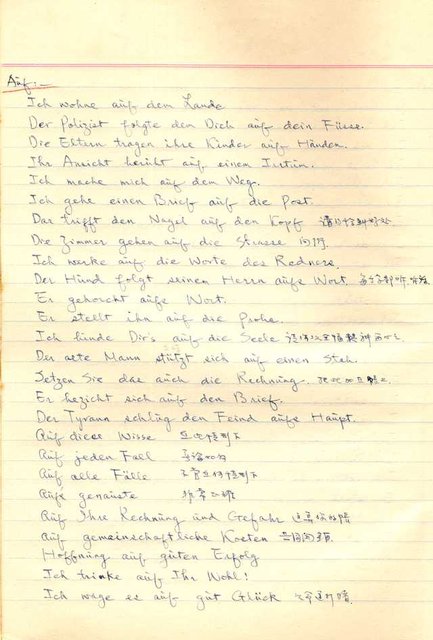 Auf:-
Ich wohne auf dem Lande
Der Polizist folgte den Dich auf dein Füsse.
Die Eltern tragen ihre Kinder auf Händen.
Ihr Ansicht beruht auf einen Irrtum.
Ich mache mich auf dem Weg.
Ich gehe einen Brief auf die Post.
Das trifft den Nagel auf den Kopf
Die Zimmer gehen auf die Strasse
Ich merke auf die Worte des Redners.
Der Hund folgt seinen Herrn aufs Wort.
Er gehorcht aufs Wort.
Er stellt ihn auf die Probe.
Ich binde Dir's auf die Seele
Der alte Mann stützt sich auf einen Stab.
Setzen Sie das auch die Rechnung.
Er bezieht sich auf den Brief.
Der Tyrann schlug den Feind aufs Haupt.
Auf diese Wisse
Auf jeden Fall
Auf alle Fälle
Aufs genauste
Auf Ihre Rechnung und Gefahr
Auf gemeinschaftliche Kosten
Hoffnung auf guten Erfolg
Ich trinke auf Ihr Wohl!
Ich wage es auf gut Glück